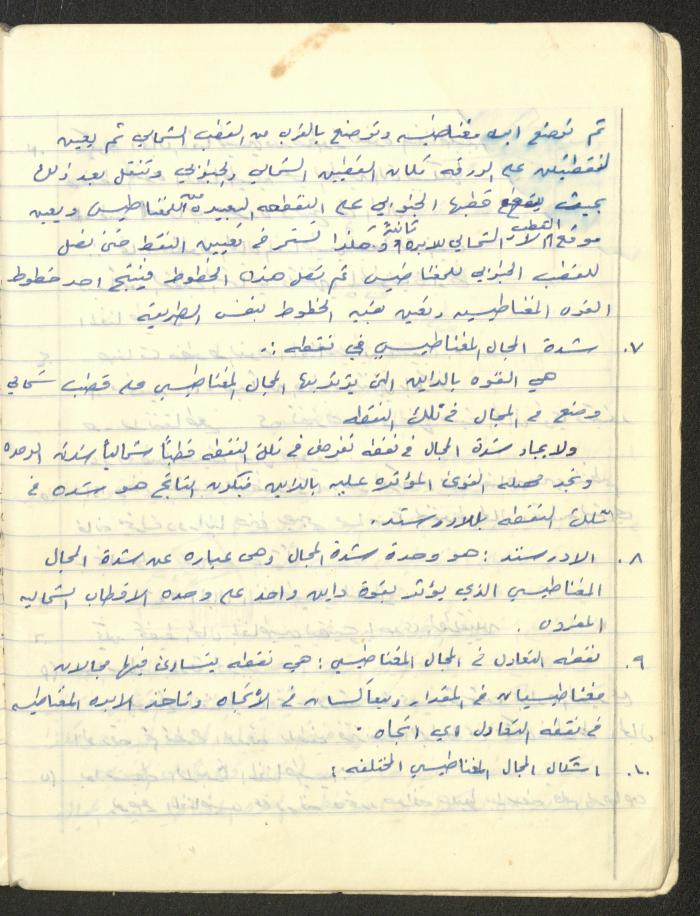 ثم توضع ابره مغناطيسيه وتوضع بالقرب من القطب الشمالي ثم يعين
نقطتين على الورقه تمثلان القطبين الشمالي والجنوبي وتنقل بعد ذلك
بحيث يقع قطبها الجنوبي على النقطه البعيده عن المغناطيس ويعين
موقع القطب الشمالي للابره ثانية وهكذا نستمر في تعيين النقط حتى نصل
للقطب الجنوبي للمغناطيس ثم نصل هذه الخطوط فينتج احد خطوط
القوه المغناطيسيه وتعين بقيه الخطوط بنفس الطريقه
٧. شدة المجال المغناطيسي في نقطه :-
هي القوه بالداين التي يؤثر بها المجال المغناطيسي على قطب شمالي
وضع في المجال في تلك النقطه
ولايجاد شدة المجال في نقطه نفرض في تلك النقطه قطباً شمالياً شدته الوحده
ونجد محصله القوى المؤثره عليه بالداين فيكون الناتج هو شده في
تلك النقطه بالاورستد.
٨. الاورستد : هو وحدة شدة المجال وهي عباره عن شدة المجال
المغناطيسي الذي يؤثر بقوة داين واحد على وحده الاقطاب الشماليه
المفرده .
٩. نقطه التعادل في المجال المغناطيسي : هي نقطه يتساوى فيها مجالان
مغناطيسيان في المقدار ويتعاكسان في الاتجاه وتاخذ الابره المغناطيسيه
في نقطه التعادل اي اتجاه .
١٠. اشكال المجال المغناطيسي المختلفه :